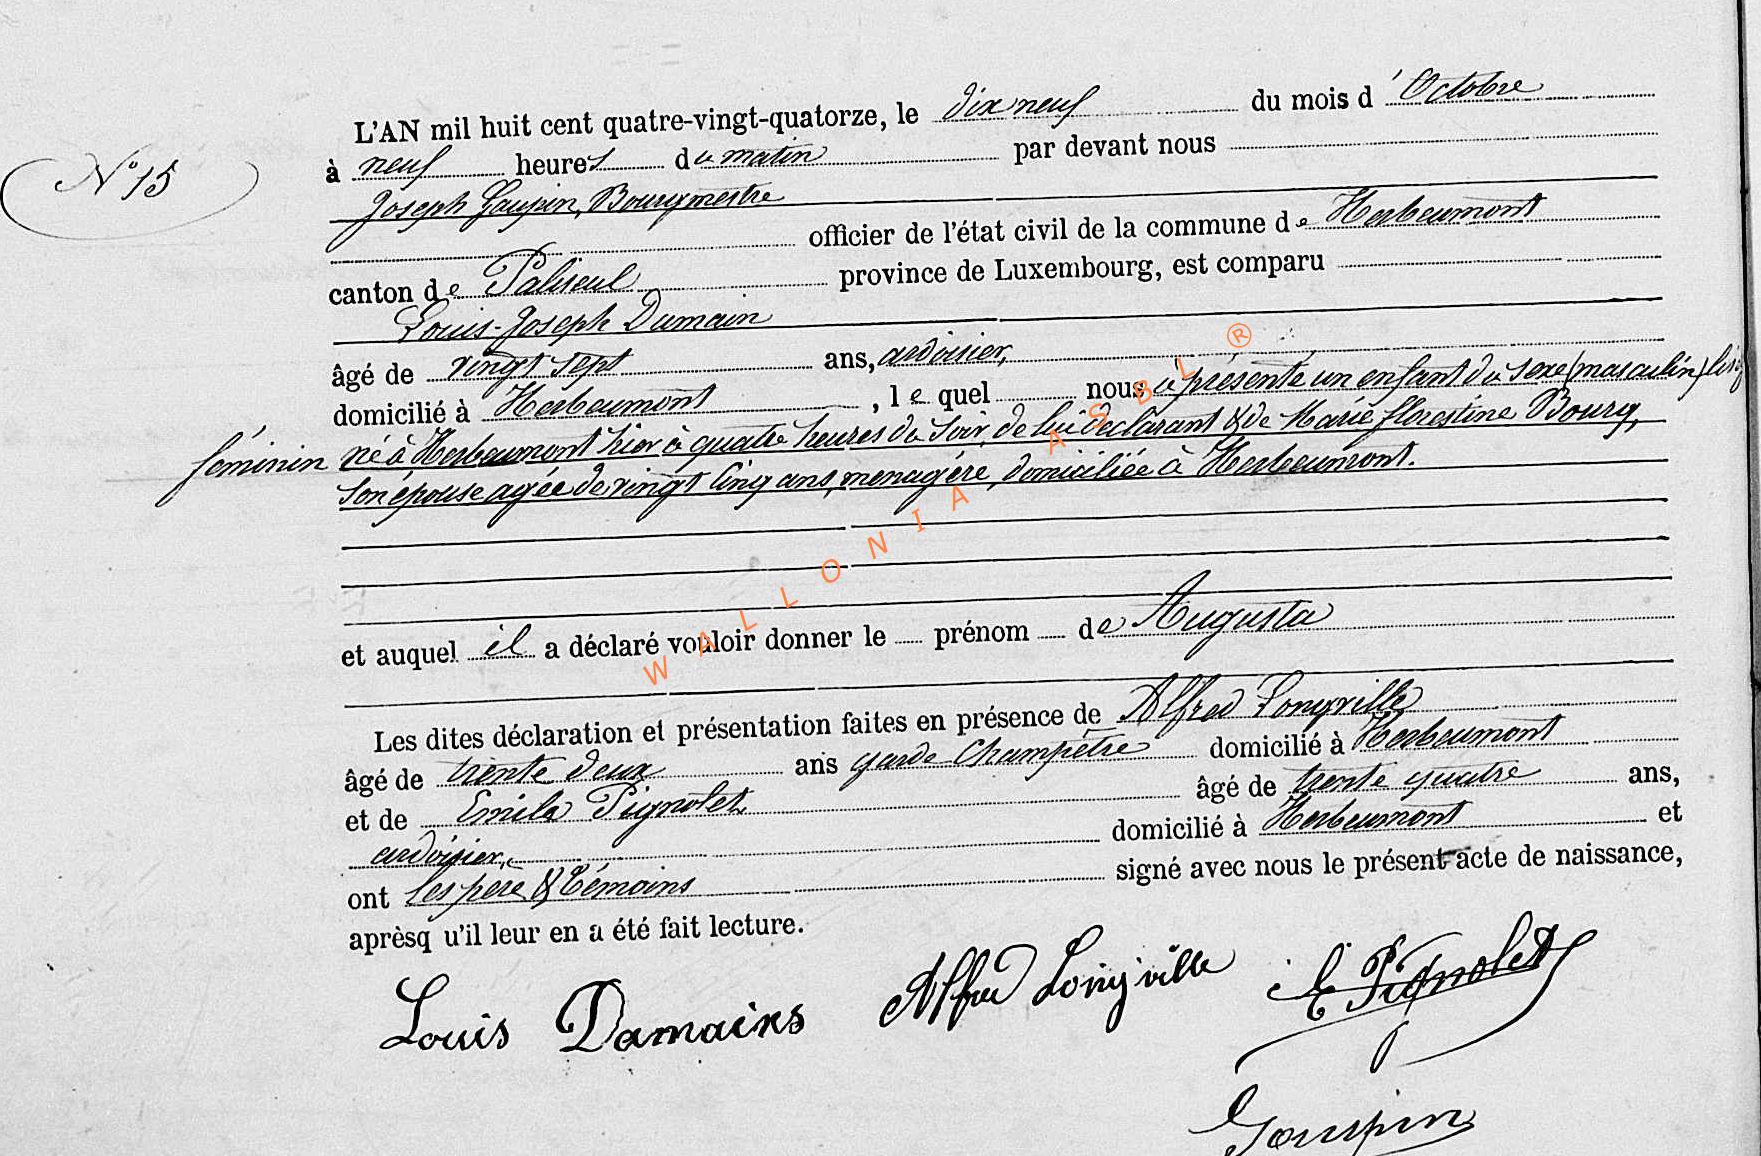 L'AN mil huit cent quatre-vingt-quatorze, le dix neuf du mois d'Octobre
N° 15
à neuf heures du matin par devant nous
Joseph Goupin, Bourgmestre
officier de l'état civil de la commune de Herbeumont
canton de Paliseul province de Luxembourg, est comparu
Louis-Joseph Dumain
âgé de vingt sept ans, ardoisier,
domicilié à Herbeumont, lequel nous a présenté un enfant du sexe (masculin) lisez
féminin né à Herbeumont hier à quatre heures du soir, de lui déclarant & de Marie florestine Bourg,
son épouse agée de vingt cinq ans, menagère, domiciliée à Herbeumont.
et auquel il a déclaré vouloir donner le prénom de Augusta
Les dites déclaration et présentation faites en présence de Alfred Longville
âgé de trente deux ans garde Champêtre domicilié à Herbeumont
et de Emile Pignolet âgé de trente quatre ans,
ardoisier, domicilié à Herbeumont et
ont les père & témoins signé avec nous le présent acte de naissance,
aprèsq u'il leur en a été fait lecture.
Louis Damains Alfred Longville E Pignolet
Goupin
WALLONIA ASBL ®